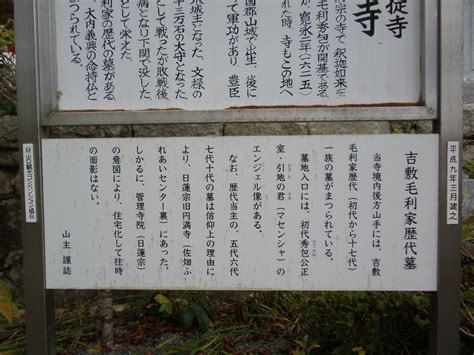 提寺
寺
宗の寺で、釈迦如来を
毛利秀包が開基である
が、寛永二年(一六二五)
れた時、寺もこの地へ
国郡山城で出生、後に
て軍功があり、豊臣
米城主となった。文禄の
十三万石の大守となった
として戦ったが敗戦後、
病となり下関で没した
として栄えた。
利家の歴代の墓がある。
大内義興の念持仏と
られている。
平成九年三月建之
吉敷毛利家歴代墓
当寺境内後方山手には、吉敷
毛利家歴代(初代から十七代)
一族の墓がまつられている。
墓地入口には、初代秀包公正
室・引地の君(マセンシャ)の
エンジェル像がある。
なお、歴代当主の、五代六代
七代十代の墓は信仰上の理由に
より、日蓮宗旧円満寺(佐畑ふ
れあいセンター裏)にあった。
しかるに、管理寺院(日蓮宗)
の意図により、住宅化して往時
の面影はない。
山主 謹誌
㈶山口観光コンベンション協会